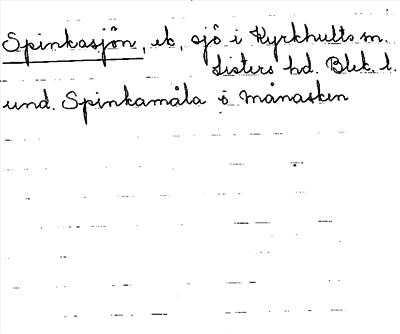 Spinkasjön, eb, sjö i Kyrkhults sn.
Listers hd. Blek. l.
und. Spinkamåla o månasken